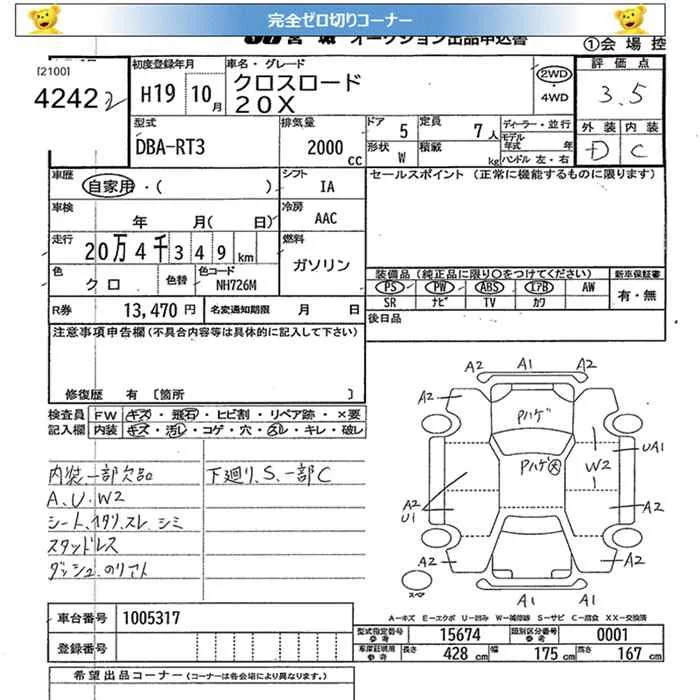 完全ゼロ切りコーナー
JU宮城 オークション出品申込書
①会場控
[2100]
4242
初度登録年月 H19 10月
車名・グレード クロスロード 20X
2WD・4WD
評価点 3.5
外装 内装
D C
型式 DBA-RT3
排気量 2000cc
ドア 5
定員 7人
形状 W
積載 kg
ディーラー・並行
モデル年式 年
ハンドル 左・右
車歴 自家用・( )
シフト IA
セールスポイント (正常に機能するものに限ります)
車検 年 月( 日)
冷房 AAC
走行 20万4千349km
燃料 ガソリン
色 クロ
色替
色コード NH726M
装備品(純正品に限り○をつけてください)
新車保証書
PS PW ABS エアB AW
SR ナビ TV カワ
有・無
R券 13,470円
名変通知期限 月 日
後日品
注意事項申告欄(不具合内容等は具体的に記入して下さい)
修復歴 有 [箇所 ]
検査員記入欄
FW キズ・飛石・ヒビ割・リペア跡・×要
内装 キズ・汚レ・コゲ・穴・スレ・キレ・破レ
内装、一部欠品
下廻り、S、一部C
A、U、W2
シート、イタリ、スレ、シミ
スタッドレス
ダッシュ、のりアト
A2 A1 A2
A2 A2
Pハゲ
UA1
Pハゲ大
W2
A2
U1
A2
A2 A2
A1 A1
スペア
A-キズ E-エクボ U-凹み W-補修跡 S-サビ C-腐食 XX-交換済
車台番号 1005317
登録番号
型式指定番号 参考 15674
類別区分番号 参考 0001
車庫証明用 参考
長さ 428cm
幅 175cm
高さ 167cm
希望出品コーナー(コーナーは各会場により異なります。)